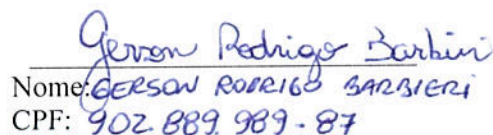 Gerson Rodrigo Barbieri
Nome: GERSON RODRIGO BARBIERI
CPF: 902.889.989-87